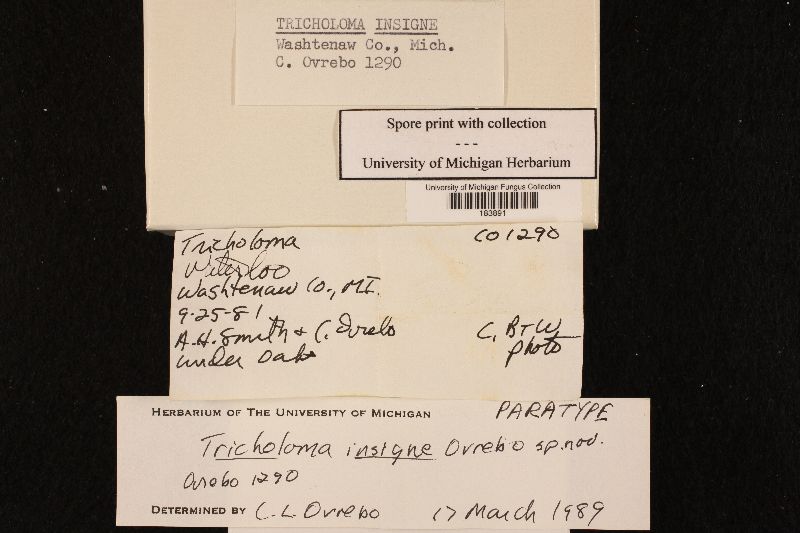 TRICHOLOMA INSIGNE
Washtenaw Co., Mich.
C. Ovrebo 1290
Spore print with collection
- - -
University of Michigan Herbarium
University of Michigan Fungus Collection
183891
Tricholoma
CO1290
Waterloo
Washtenaw Co., MI.
9-25-81
A.H. Smith & C. Ovrebo
under oak
C, B+W
photo
HERBARIUM OF THE UNIVERSITY OF MICHIGAN
PARATYPE
Tricholoma insigne Ovrebo sp. nov.
Ovrebo 1290
DETERMINED BY C.L. Ovrebo 17 March 1989